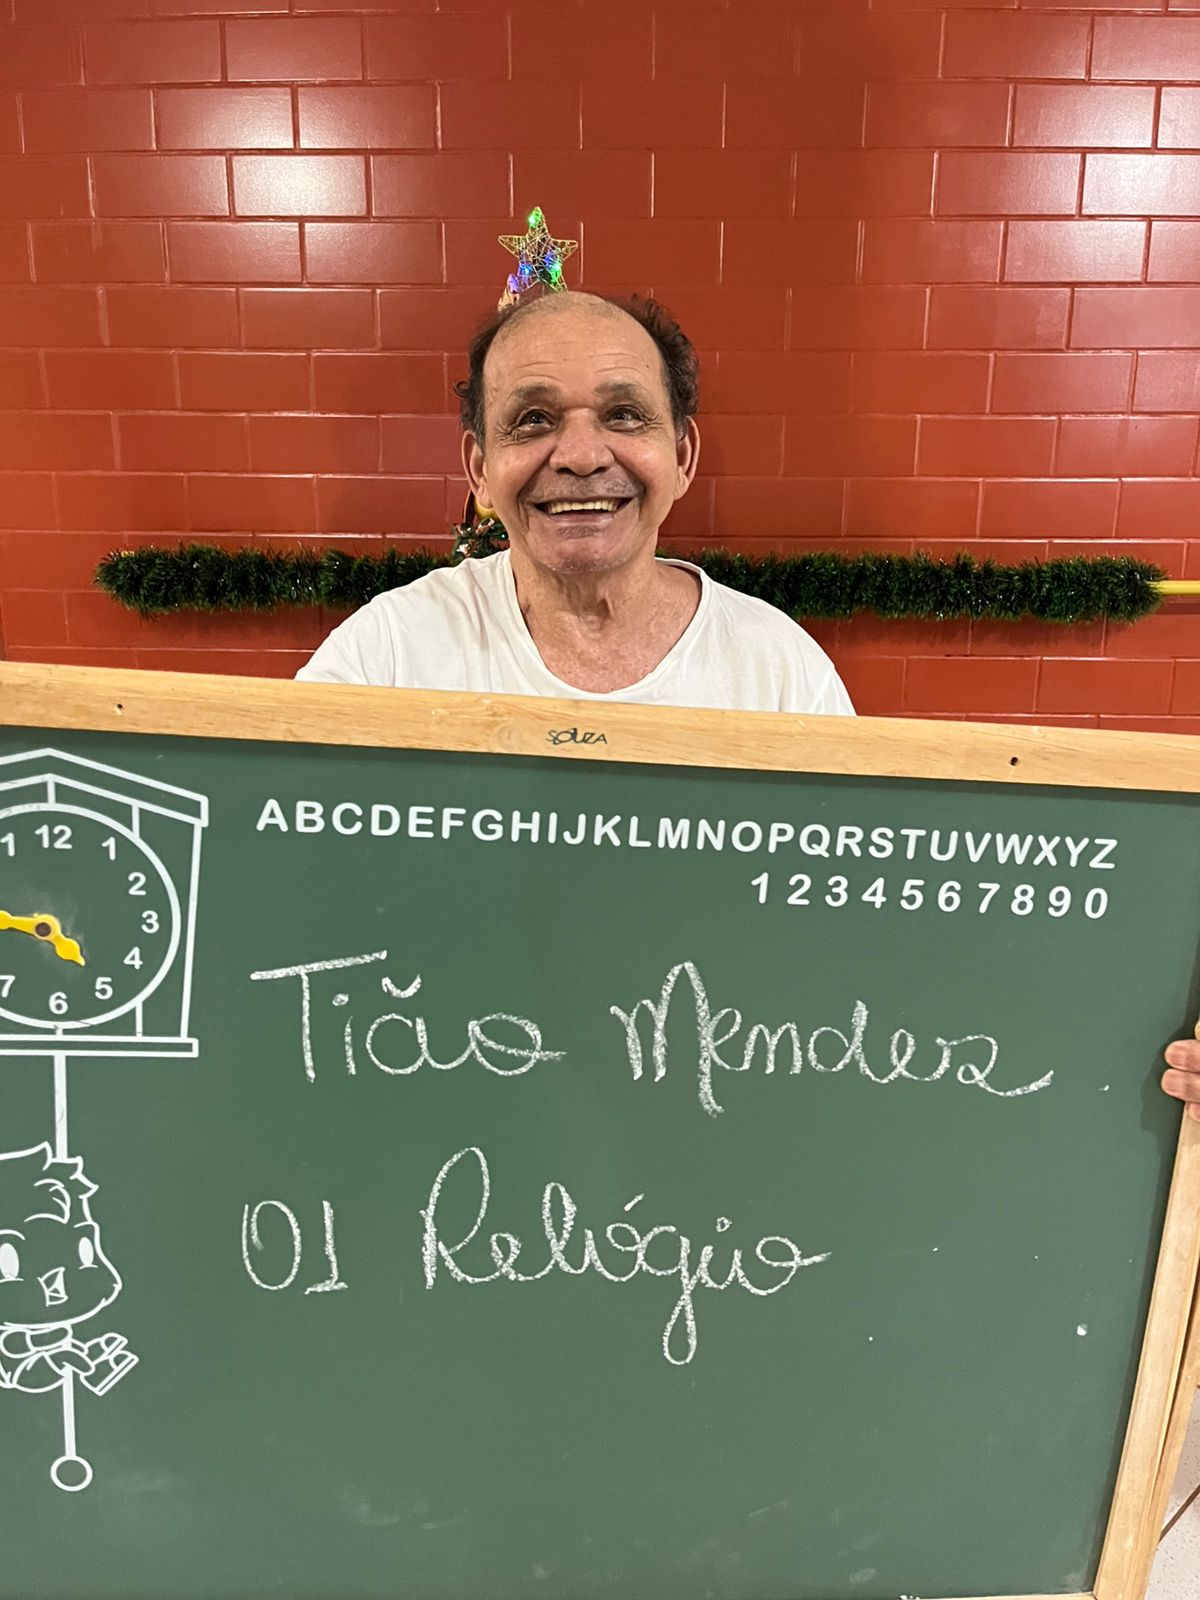 SOUZA
ABCDEFGHIJKLMNOPQRSTUVWXYZ
1 2 3 4 5 6 7 8 9 0
1 12 1
2
3
4
5
6
7
Tião Mendes
01 Relógio